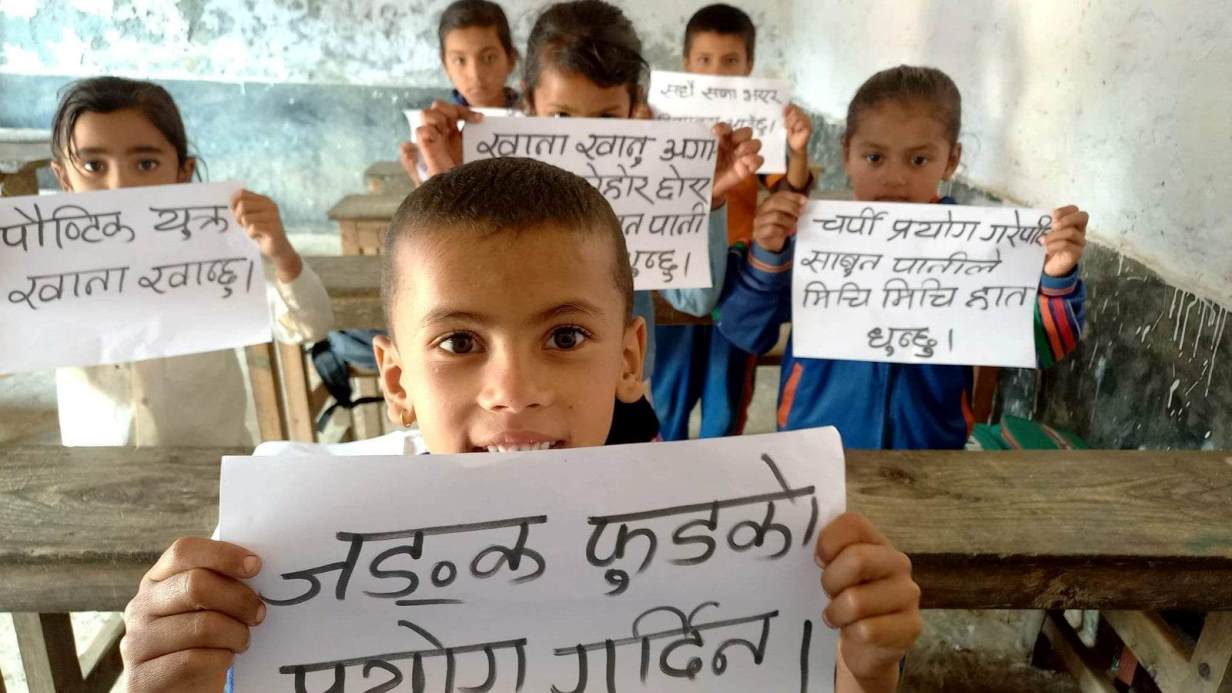 पौष्टिक युक्त
खाना खान्छु।
खाना खानु अगा
त पानी
सधैँ सफा भएर
चर्पी प्रयोग गरेपछि
साबुन पानीले
मिचि मिचि हात
धुन्छु।
जङ्क फुडको
प्रयोग गर्दिन।